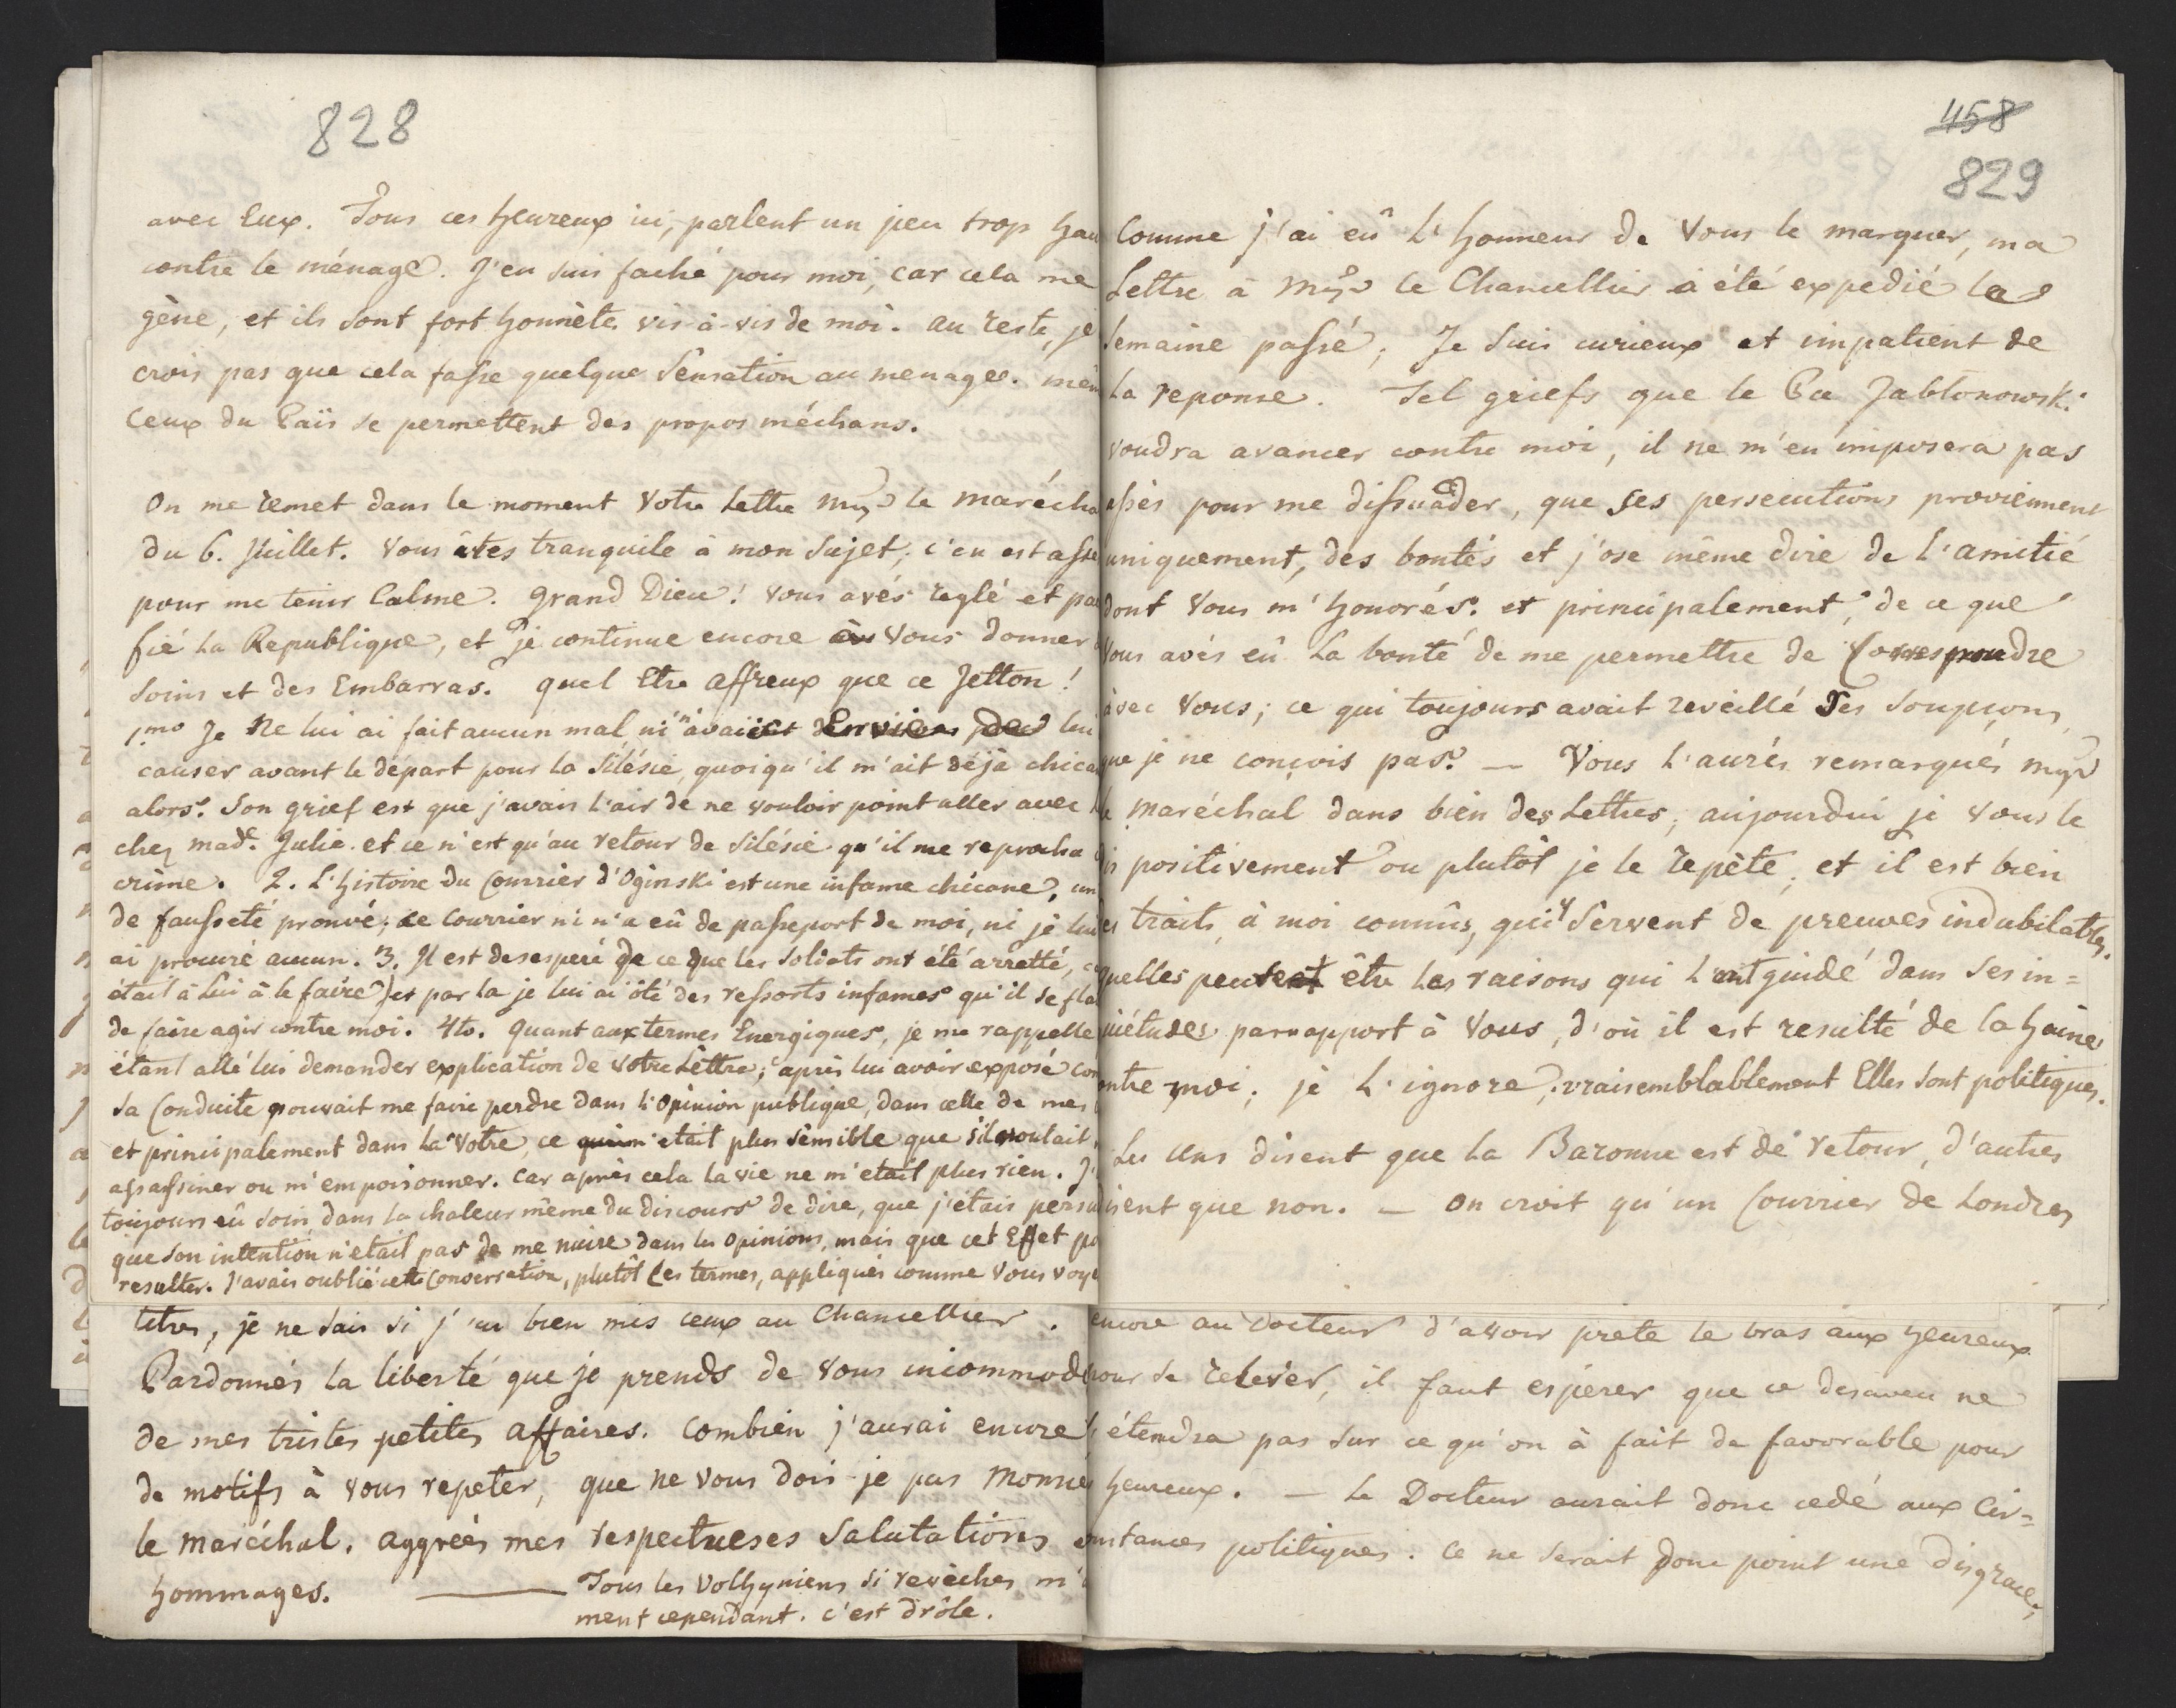 828
avec Eux. Tous ces heureux ici, parlent un peu trop hau
contre le ménage. J'en suis faché pour moi, car cela me
gène, et ils sont fort honnêtes vis-à-vis de moi. au reste, je
crois pas que cela fasse quelque Sensation au menage. mêm
Ceux du Païs se permettent des propos méchans.
On me remet dans le moment Votre Lettre le marécha
du 6. Juillet. Vous êtes tranquile à mon Sujet; c'en est asse
pour me tenir Calme. Grand Dieu! Vous avés reglé et pac
fié la Republique, et je continue encore à Vous donner
Soins et des Embarras. quel Etre affreux que ce Jetton!
1mo Je Ne lui ai fait aucun mal ni n'avais lui
causer avant le départ pour la Silésie, quoiqu'il m'ait déjà chica
alors. Son grief est que j'avais l'air de ne vouloir point aller avec
chez made. Julie. et ce n'est qu'au retour de Silésie qu'il me reprocha
crime. 2. L'histoire du Courrier d'Oginski est une infame chicane, un
de fausseté prouvé; ce Courrier ni n'a eû de passeport de moi, ni je lui
ai procuré aucun. 3. Il est desesperé de ce que les Soldats ont été arretté,
était à Lui à le faire) et par la je lui ai ôté des ressorts infames qu'il se fla
de faire agir contre moi. 4to. Quant aux termes Energiques, je me rappelle
étant allé lui demander explication de votre Lettre; après lui avoir exposé com
sa Conduite pouvait me faire perdre dans l'Opinion publique, dans celle de mes
et principalement dans la Votre, ce qui m'etait plus sensible que s'il voulait
assassiner ou m'empoisonner. car après cela la vie ne m'etait plus rien. J'
toujours eû soin dans la chaleur même du discours de dire, que j'étais persua
que son intention n'etait pas de me nuire dans les opinions, mais que cet Effet po
resulter. J'avais oublié cette Conversation, plutôt les termes, appliqués comme Vous voye
titres, je ne sais si j'ai bien mis ceux au Chancellier.
Pardonnés la liberté que je prends de Vous incommode
de mes tristes petites affaires. Combien j'aurai encore
de motifs à vous repeter, que ne vous dois-je pas Monse
le maréchal. aggréés mes respectueses Salutations
hommages. — Tous les Volhyniens si revèches m'
ment cependant. c'est drôle.
458
829
Comme j'ai eû l'honneur de Vous le marquer, ma
Lettre à le Chancellier a été expedié la
Semaine passé; Je suis curieux et impatient de
la reponse. Tel griefs que le Pce Jablonowski
voudra avancer contre moi, il ne m'en imposera pas
assés pour me dissuader, que ses persecutions proviennent
uniquement, des bontés et j'ose même dire de l'amitié
dont Vous m'honorés. et principalement, de ce que
Vous avés eû la bonté de me permettre de Correspondre
avec Vous; ce qui toujours avait reveillé Ses Soupçons
que je ne conçois pas. — Vous l'aurés remarqués
le Maréchal dans bien des Lettres; aujourdui je vous le
dis positivement ou plutôt je le repète; et il est bien
des traits, à moi connûs, qui y Servent de preuves indubitables.
quelles peuvent être les raisons qui l'ont guidé dans Ses in=
quiétudes par rapport à Vous, d'où il est resulté de la haine
contre moi; je l'ignore; vraisemblablement Elles sont politiques.
Les Uns disent que la Baronne est de retour, d'autres
disent que non. — On croit qu'un Courrier de Londres
encore au Docteur d'avoir prete le bras aux heureux
pour se relever, il faut espérer que ce desaveu ne
s'étendra pas sur ce qu'on à fait de favorable pour
heureux. — Le Docteur aurait donc cedé aux Cir=
constances politiques. Ce ne serait donc point une disgrace,